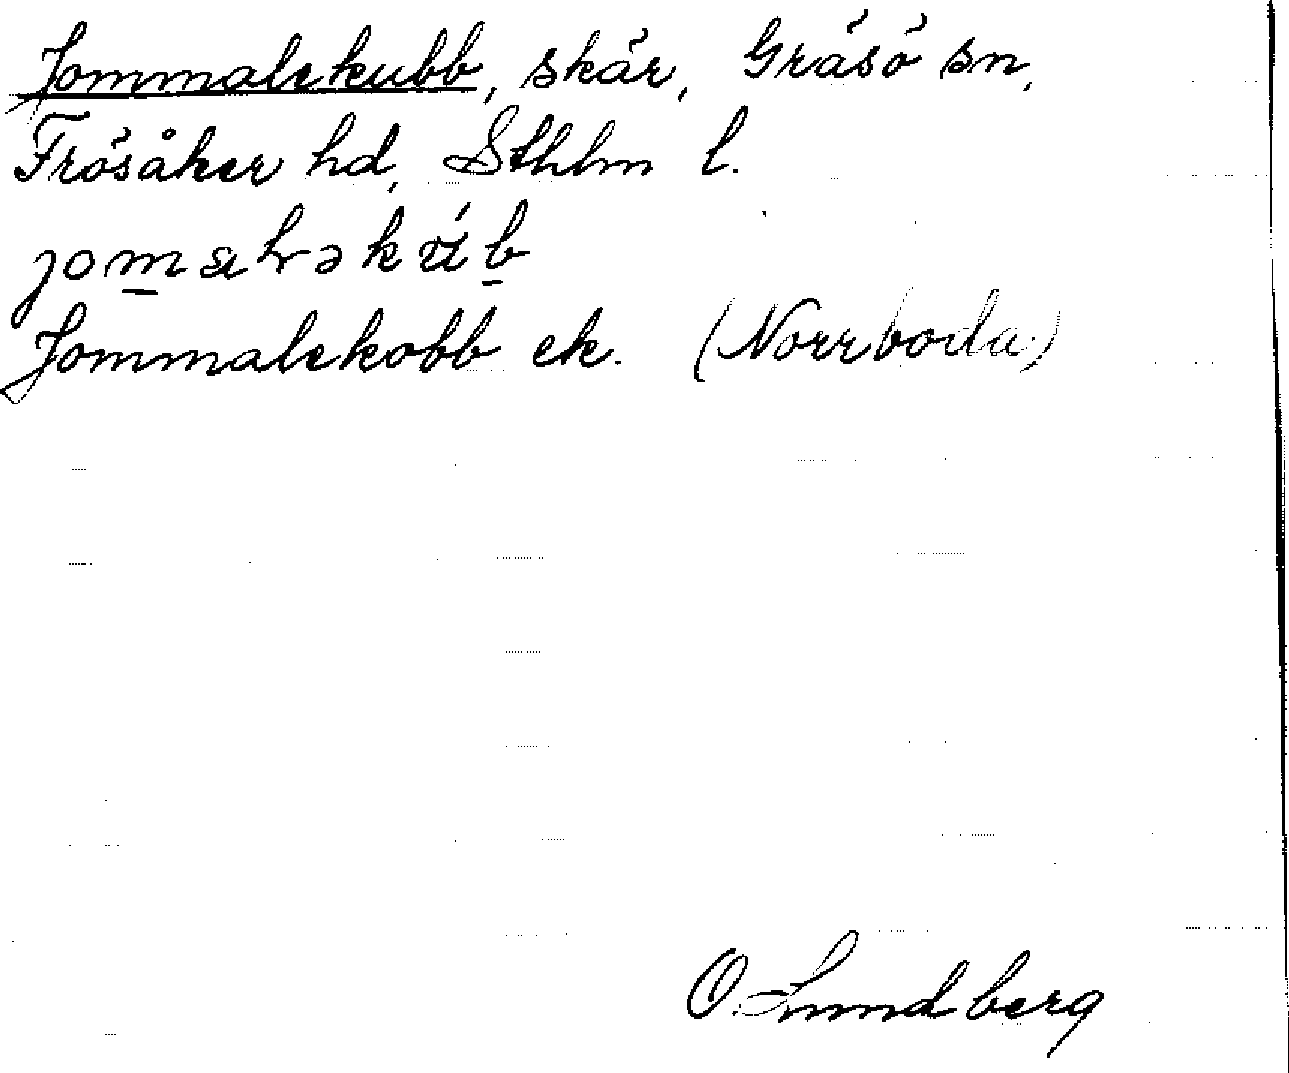 Jommalekubb, skär, Gräsö sn,
Frösåker hd, Sthlm l.
Jommalekobb ek. (Norrboda)
O. Lundberg